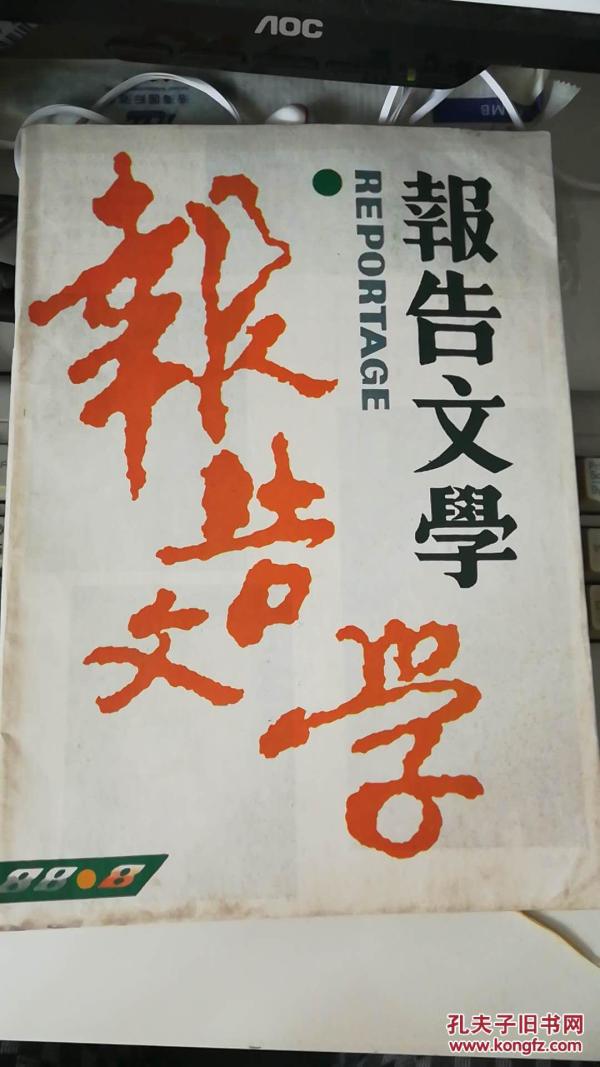 AOC
報告文學
REPORTAGE
報告
文學
88·8
MB
孔夫子旧书网
www.kongfz.com